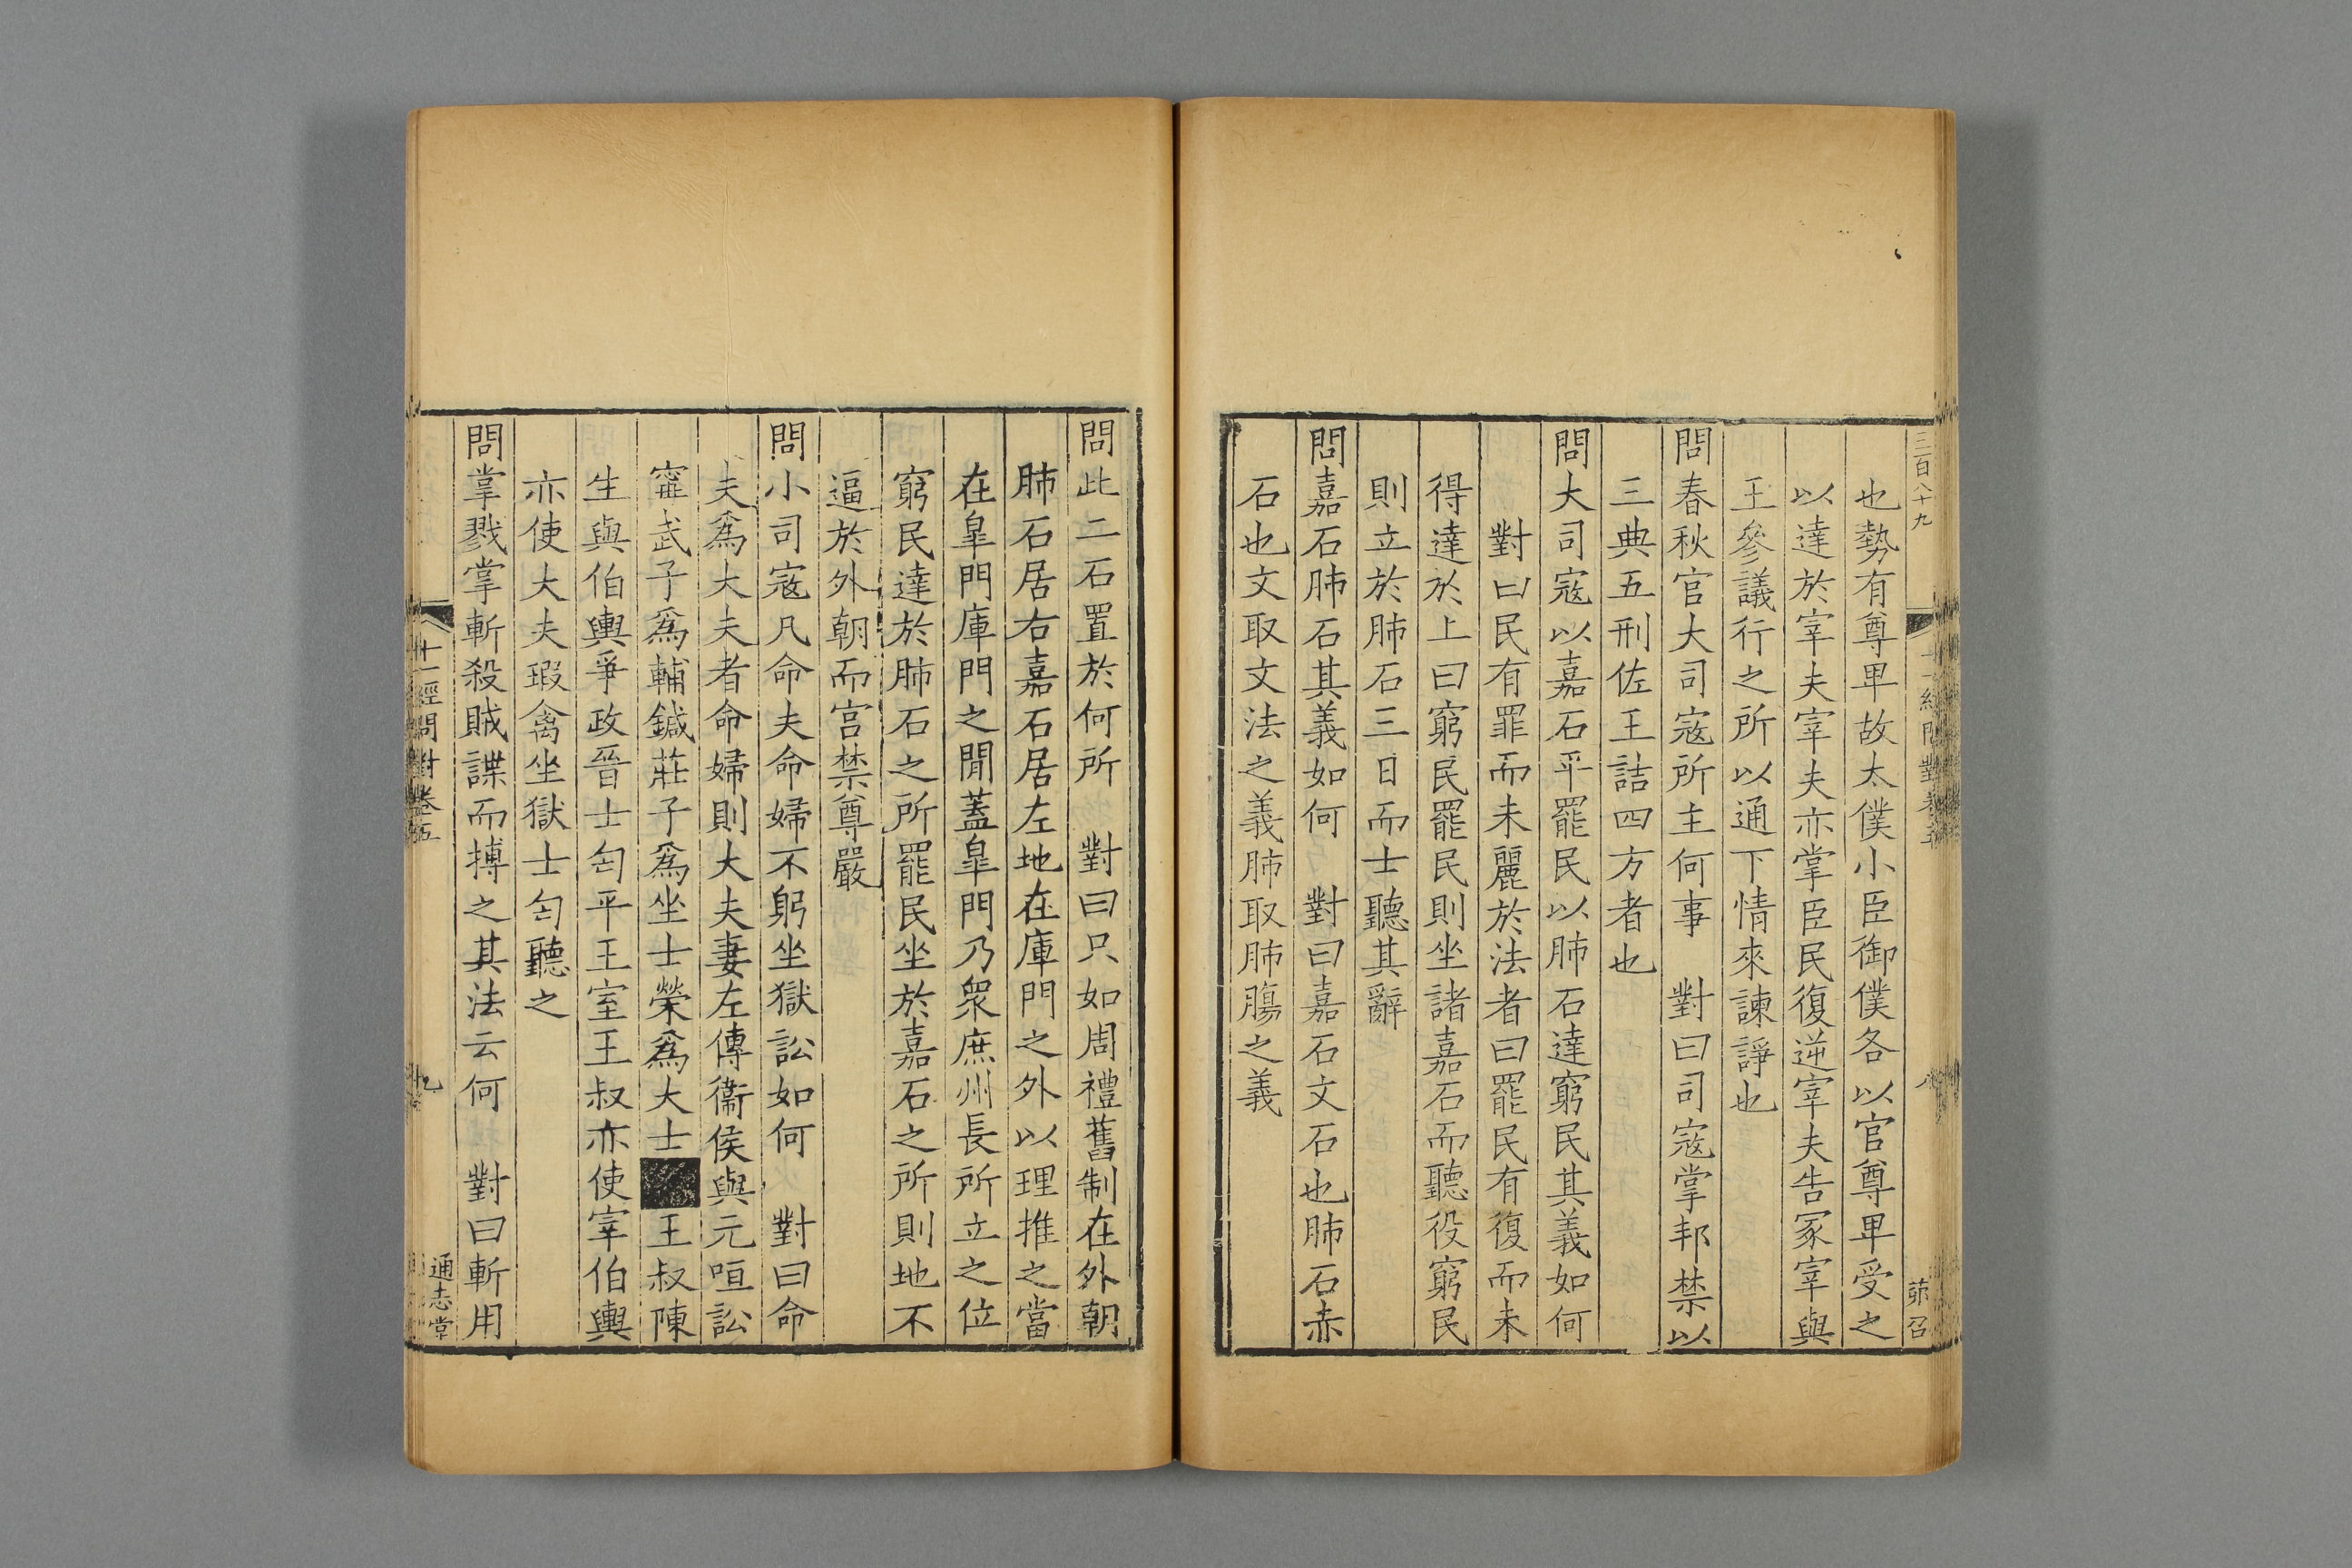 三百八十九
也勢有尊卑故太僕小臣御僕各以官尊卑受之
以達於宰夫宰夫亦掌臣民復逆宰夫告冢宰與
王參議行之所以通下情來諫諍也
問春秋官大司寇所主何事　對曰司寇掌邦禁以
三典五刑佐王詰四方者也
問大司寇以嘉石平罷民以肺石達窮民其義如何
對曰民有罪而未麗於法者曰罷民有復而未
得達於上曰窮民罷民則坐諸嘉石而聽役窮民
則立於肺石三日而士聽其辭
問嘉石肺石其義如何　對曰嘉石文石也肺石赤
石也文取文法之義肺取肺腸之義
問此二石置於何所　對曰只如周禮舊制在外朝
肺石居右嘉石居左地在庫門之外以理推之當
在皐門庫門之閒蓋皐門乃衆庶州長所立之位
窮民達於肺石之所罷民坐於嘉石之所則地不
逼於外朝而宫禁尊嚴
問小司寇凡命夫命婦不躬坐獄訟如何　對曰命
夫爲大夫者命婦則大夫妻左傳衞侯與元咺訟
甯武子爲輔鍼莊子爲坐士榮爲大士王叔陳
生與伯輿爭政晉士匄平王室王叔亦使宰伯輿
亦使大夫瑕禽坐獄士匄聽之
問掌戮掌斬殺賊諜而搏之其法云何　對曰斬用
十一經問對卷五
九
通志堂